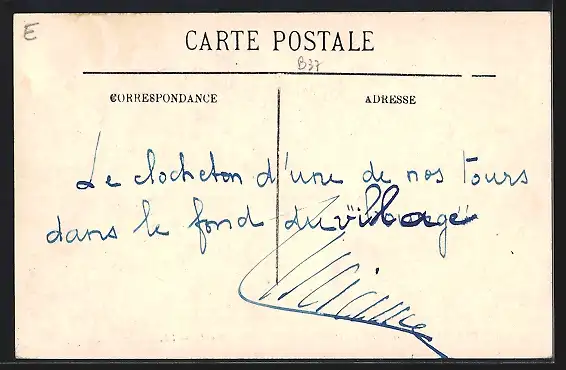 E
CARTE POSTALE
B37
CORRESPONDANCE
ADRESSE
Le clocheton d'une de nos tours
dans le fond du village